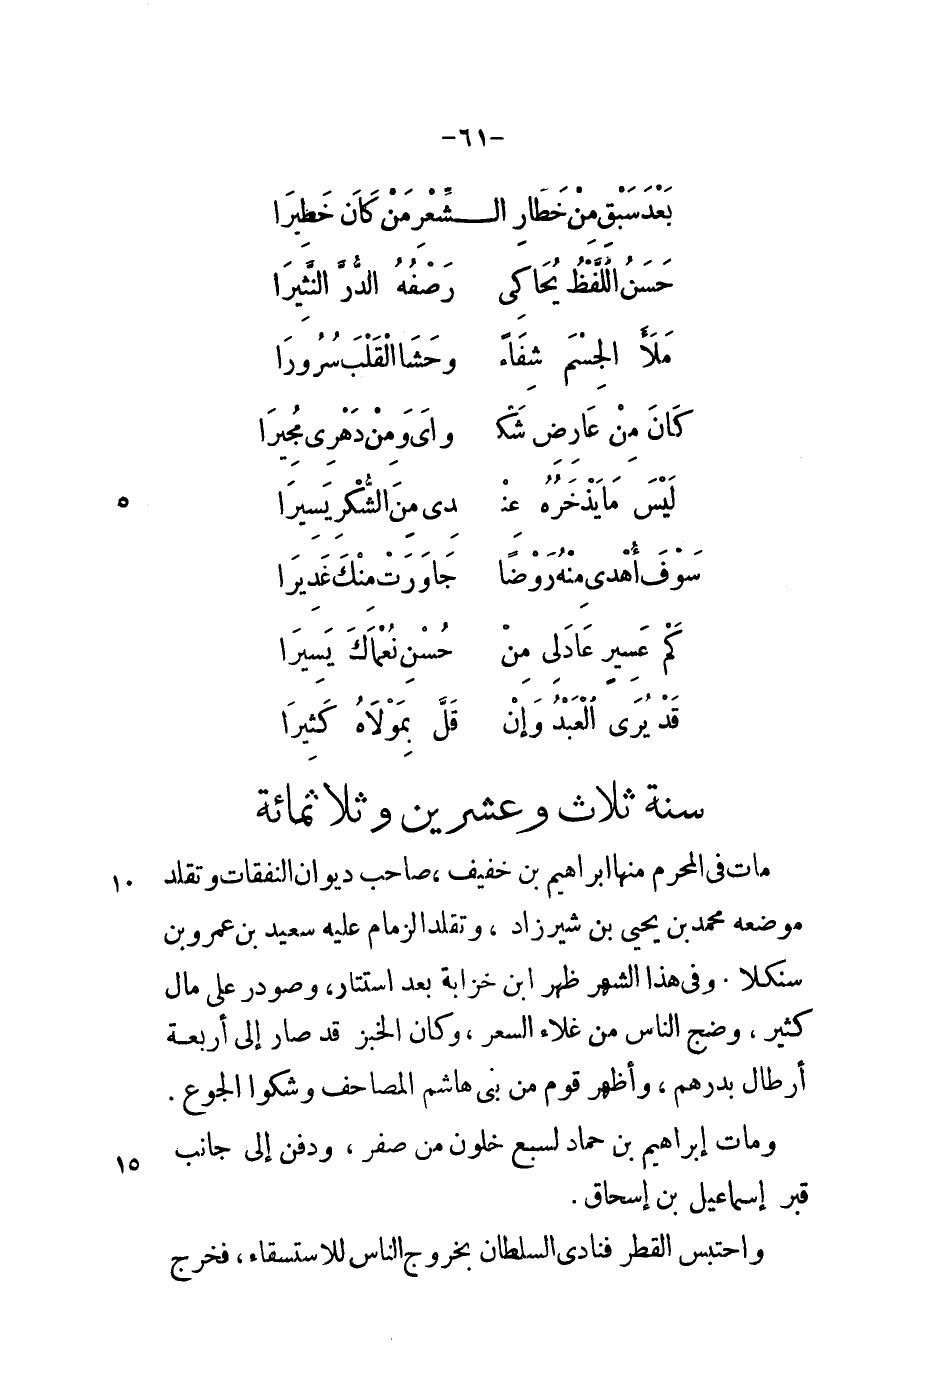 -٦١-
بَعْدَ سَبْقٍ مِنْ خَطَارِ الـــشِّعْرِ مَنْ كَانَ خَطِيرَا
حَسَنُ اللَّفْظِ يُحَاكِى رَصْفُهُ الدُّرَّ النَّثِيرَا
مَلَأَ الجِسْمَ شِفَاءً وحَشَا الْقَلْبَ سُرُورَا
كَانَ مِنْ عَارِضِ شَكْ‍ واىَ ومِنْ دَهْرِى مُجِيرَا
لَيْسَ مَا يَذْخَرُهُ عِنْ‍ دِى مِنَ الشُّكْرِ يَسِيرَا ٥
سَوْفَ أُهْدِى مِنْهُ رَوْضًا جَاوَرَتْ مِنْكَ غَدِيرَا
كَمْ عَسِيرٍ عَادَلِى مِنْ حُسْنِ نُعْمَاكَ يَسِيرَا
قَدْ يُرَى الْعَبْدُ وَإِنْ قَلَّ بِمَوْلَاهُ كَثِيرَا
سنة ثلاث وعشرين وثلاثمائة
مات فى المحرم منها ابراهيم بن خفيف ، صاحب ديوان النفقات وتقلد ١٠
موضعه محمد بن يحيى بن شيرزاد ، وتقلد الزمام عليه سعيد بن عمرو بن
سنكلا . وفى هذا الشهر ظهر ابن خزابة بعد استتار، وصودر على مال
كثير ، وضج الناس من غلاء السعر ، وكان الخبز قد صار إلى أربعـة
أرطال بدرهم ، وأظهر قوم من بنى هاشم المصاحف وشكوا الجوع .
ومات إبراهيم بن حماد لسبع خلون من صفر ، ودفن إلى جانب ١٥
قبر إسماعيل بن إسحاق .
واحتبس القطر فنادى السلطان بخروج الناس للاستسقاء ، فخرج